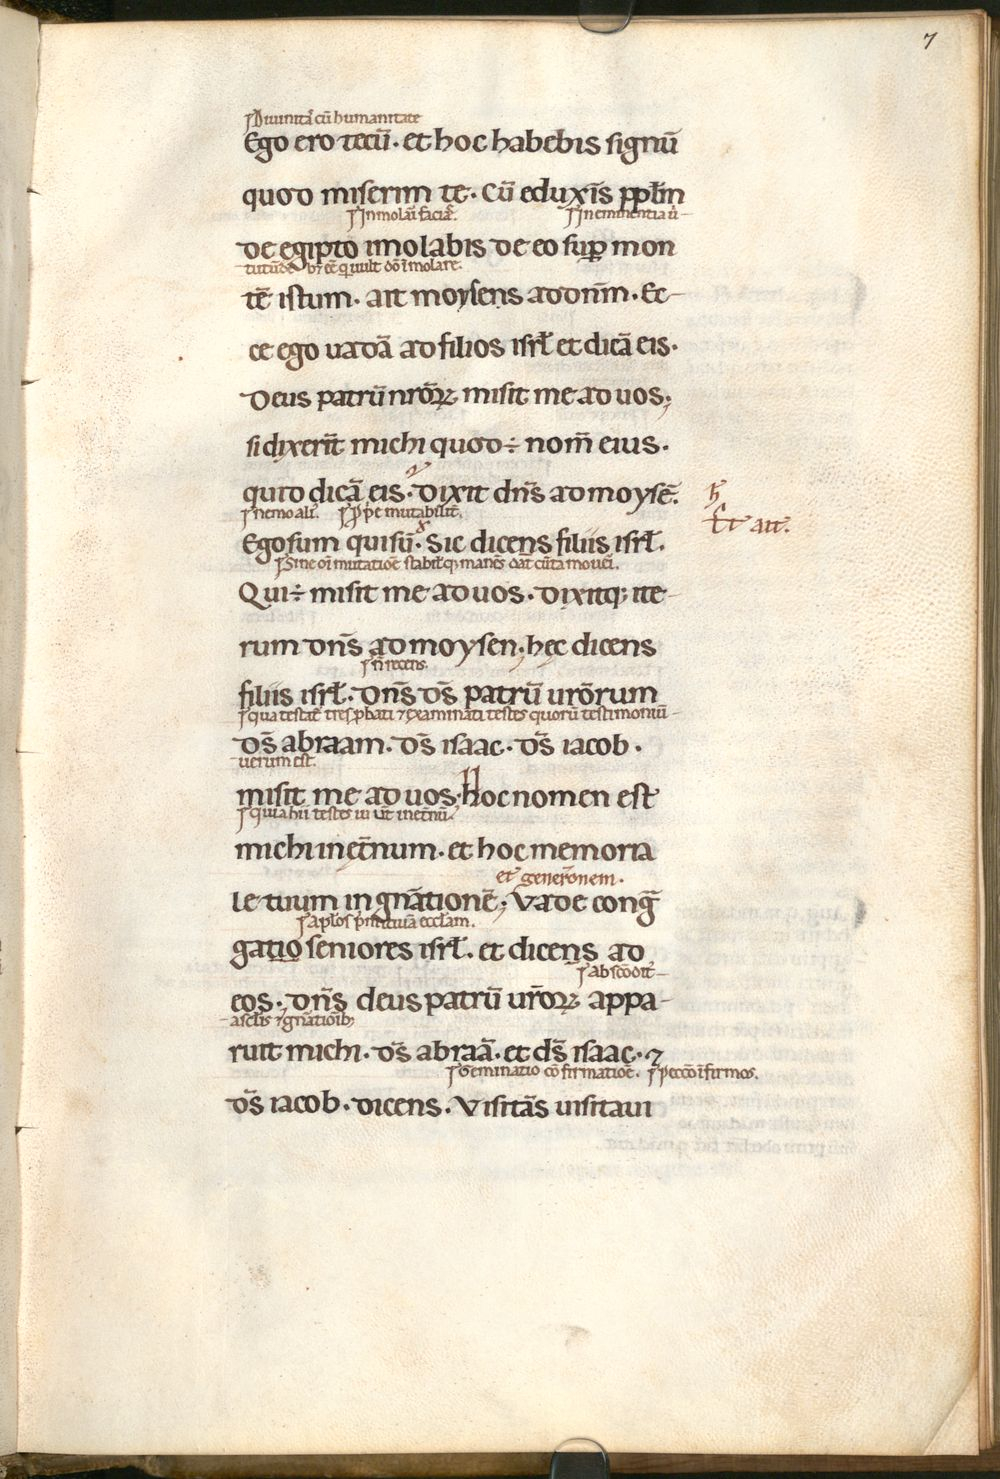 7
Diuinitā cū humanitate
Ego ero tecū. et hoc habebis signū
quod miserim te. Cū eduxīs pplm̄
In molā faciā. In eminentia ū-
de egipto imolabis deo sup mon
tutūdē ēē quult dō īmolare.
tē istum. ait moysens ad dnm̄. Ec-
ce ego uadā ad filios isrł et dicā eis.
Deus patrū nrōꝝ misit me ad uos;
si dixerīt michi quod ÷ nom̄ eius.
quid dicā eis. Dixit dn̄s ad moysē. h
nemo ali. ꝓpe mutabilit̄. Et ait.
Ego sum qui sū. Sic dicens filiis isrł.
Sine oī mutatiōe stabilꝗ manēs dat cūta moueī.
Qui ÷ misit me ad uos. Dixitq; ite-
rum dn̄s ad moysen. hęc dicens
n̄ recens.
filiis isrł. Dn̄s ds̄ patrū urōrum
qua testat̄ tres ꝓbati ⁊ examinati testes quorū testimoniū-
ds̄ abraam. ds̄ isaac. ds̄ iacob.
uerum est.
misit me ad uos. Hoc nomen est
quia hii testes in et̄nū
michi in et̄num. et hoc memoria
et generōnem.
le tuum in gnātionē; Vade congͣ
aplōs ecclam.
gatio seniores isrł. et dicens ad
abscōdit-
eos. dn̄s deus patrū urōꝝ appa-
asclīs ⁊ gnātionib;
ruit michi. ds̄ abraā. et ds̄ isaac. ⁊
Geminatio cōfirmatiōē. infirmos.
ds̄ iacob. dicens. Visitās uisitaui